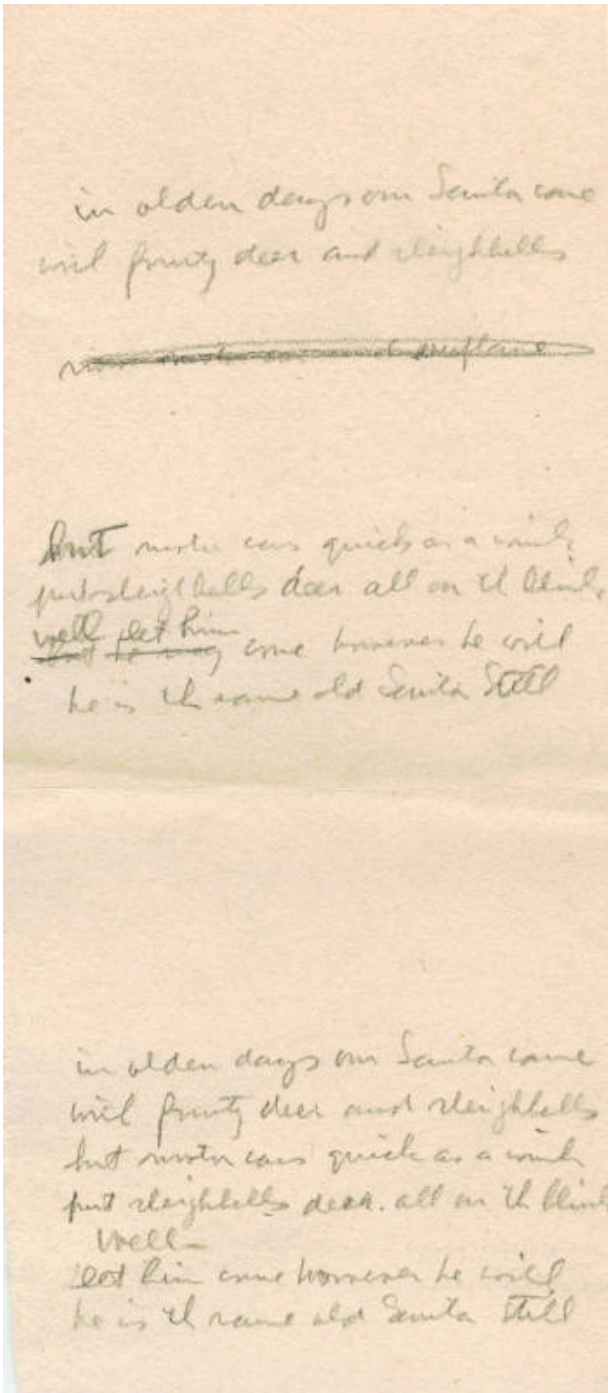 in olden days our Santa came
with frosty deer and sleighbells
now motor cars and aeroplane
but motor cars quick as a wink
put sleighbells deer all on th blink
well let him
but he may come however he will
he is th same old Santa Still
in olden days our Santa came
with frosty deer and sleighbells
but motor cars quick as a wink
put sleighbells deer. all on th blink
Well—
let him come however he will
he is th same old Santa Still